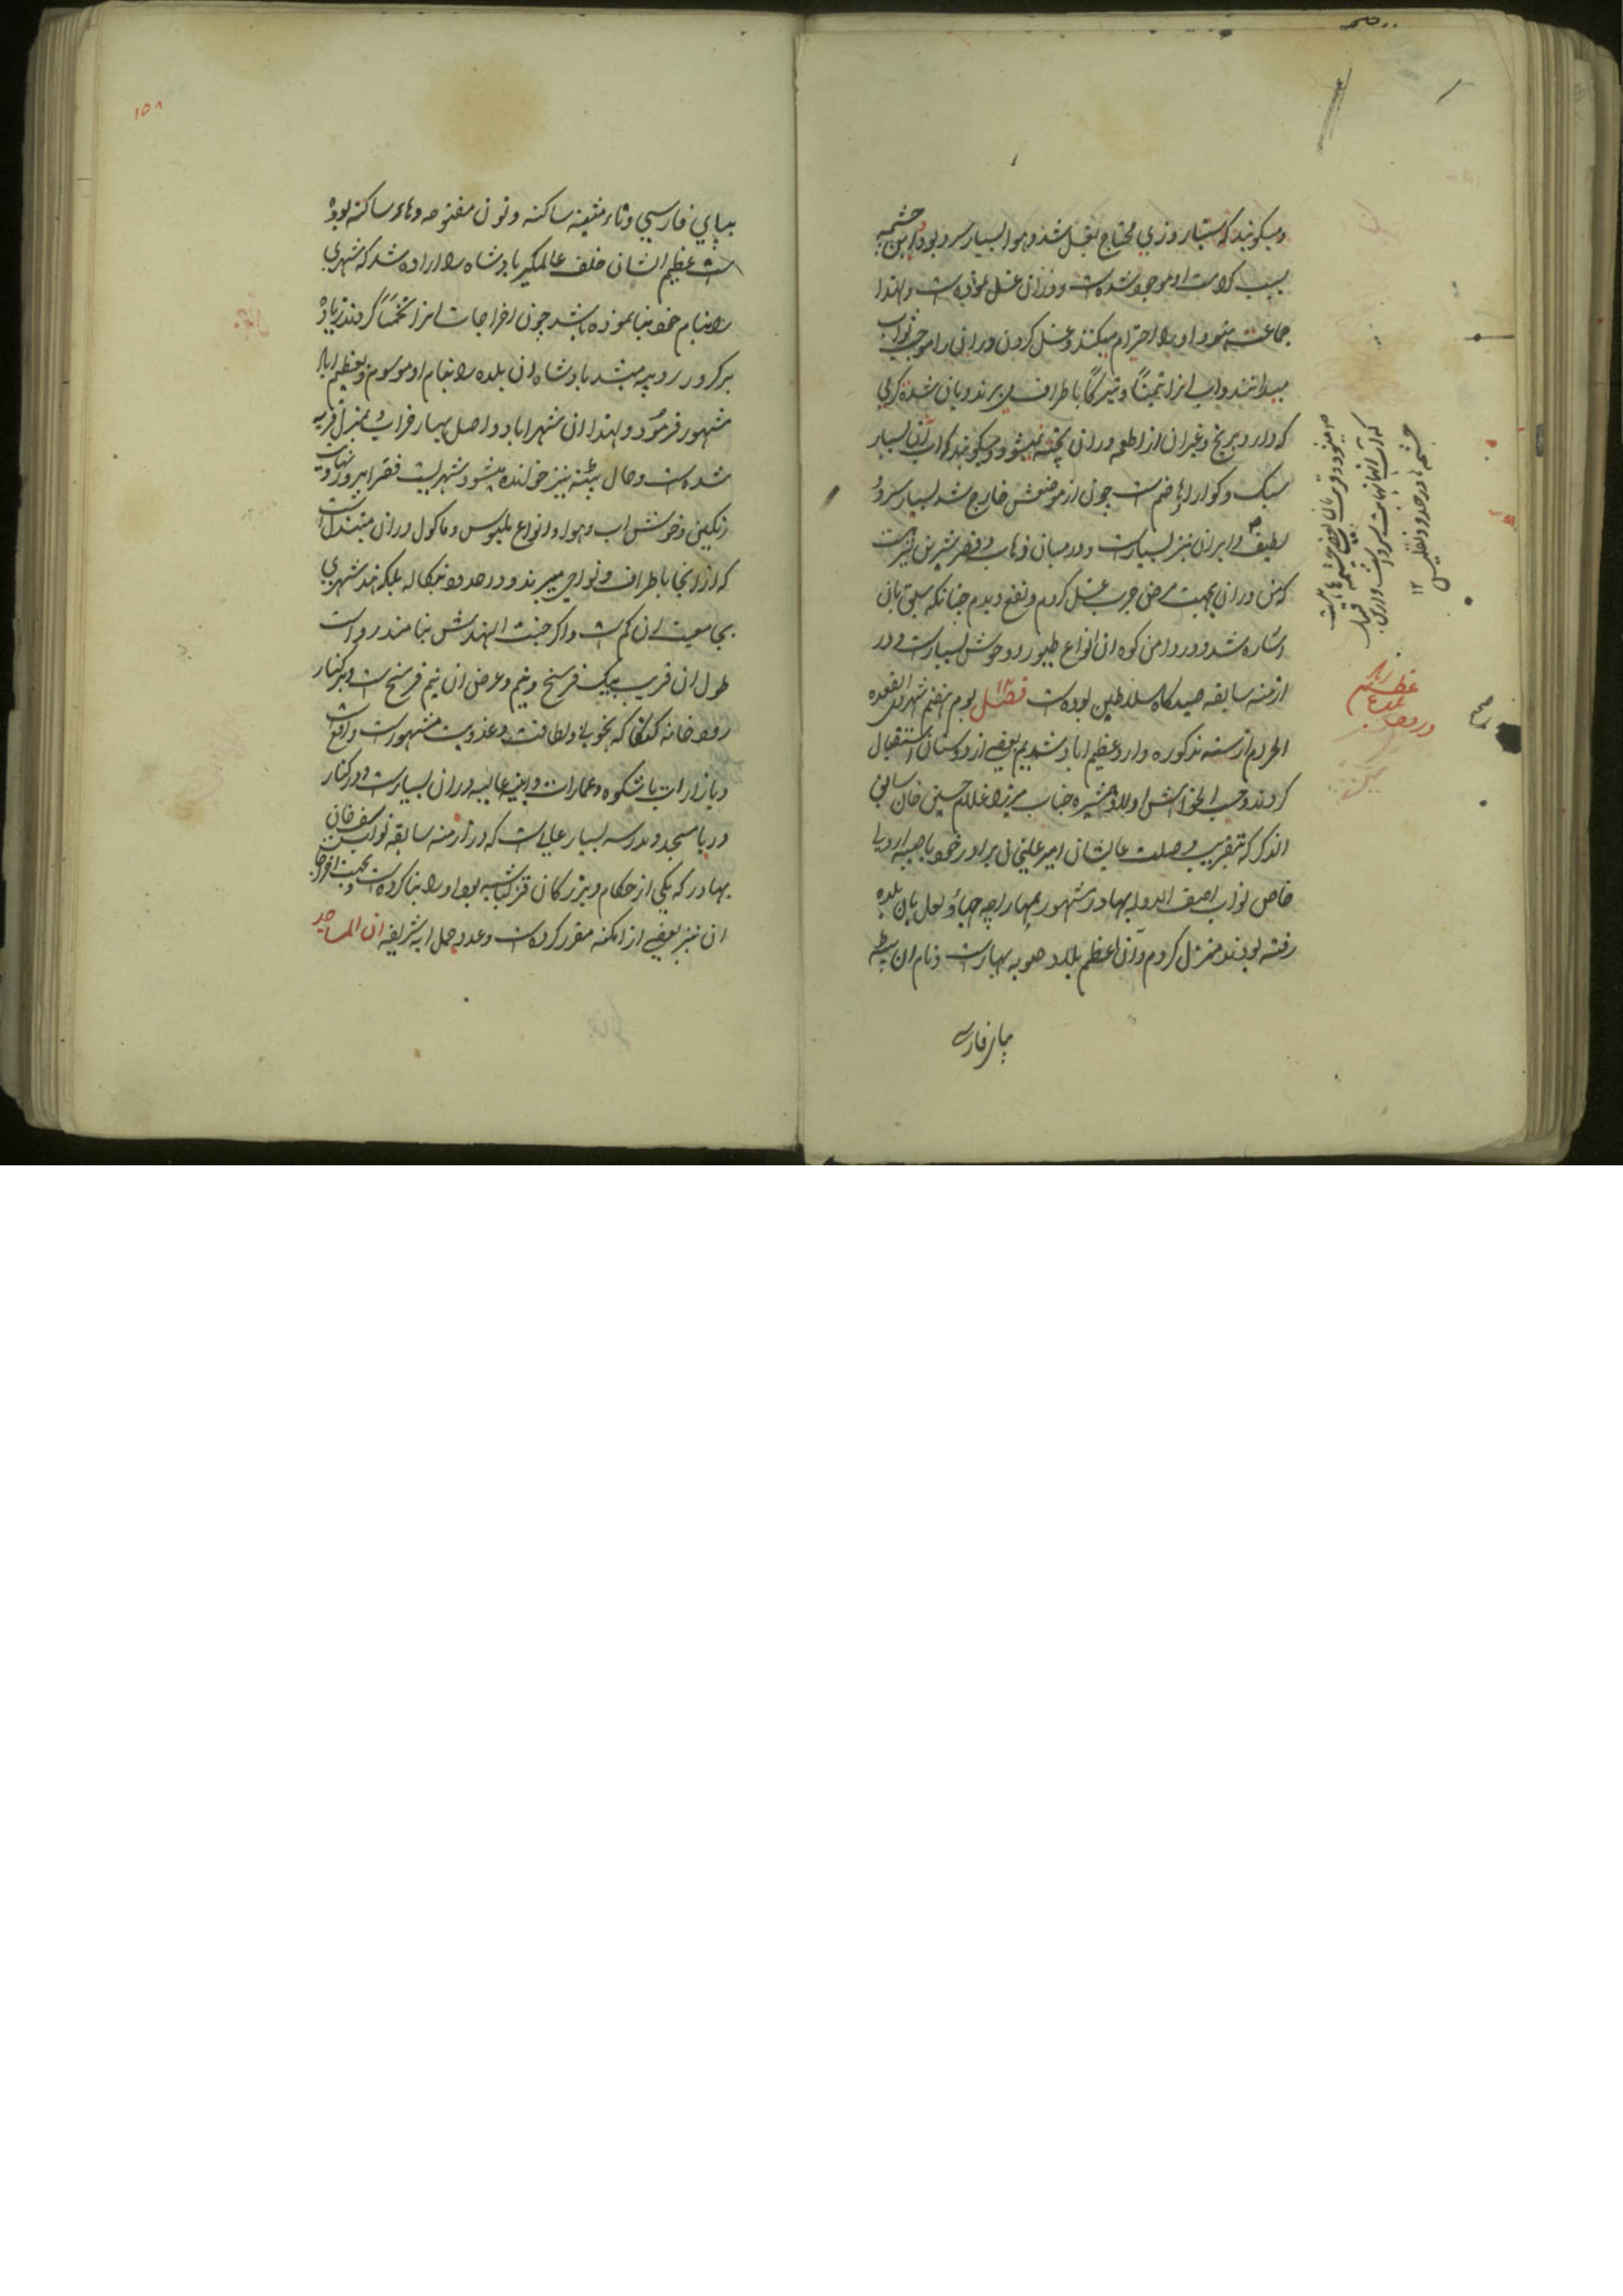 ومیکویند که سیتا روزی محتاج بغسل شد و هوا بسیار سرد بود این چشمه
بسبب کرامت او موجود شده است و در ان غسل نموده است ولهذا
جماعت هنود او را احترام میکنند و غسل کردن در ان را موجب ثواب
میدانند و اب انرا تیمناً و تبرکاً باطراف می برند و بان شده کرمی
که دارد برنج و غیر ان از اطعمه در ان پخته نمیشود و میکویند که اب ان بسیار
سبک و کوارا و هاضم است چون از موضعش خارج شد بسیار سرد و
لطیف در ایران نیز بسیار است و در میان ذهاب و قصر شیرین نیز است
که من در ان بجهت مرض جرب غسل کردم و نفع دیدم چنانکه سابق بان
اشاره شد و در دامن کوه ان انواع طیور و وحوش بسیار است و در
ازمنه سابقه صیدکاه سلاطین بوده است فصل یوم هفتم شهر ذی القعده
الحرام از سنه مذکوره وارد عظیم اباد شدیم بعضی از دوستان استقبال
کردند و حسب الخواهش اولاد همشیره جناب میرزا غلام حسین خان سابق
الذکر که بتقریب وصلت عالیشان امیر علیخان برادر خود با صبیه
خاص نواب اصف الدوله بهادر مشهور بمهاراجه بان بلده
رفته بودند منزل کردم و ان اعظم بلاد صوبه بهار است و نام ان پتنه
بپای فارسی
چشمه ها در حدود تفلیس
که آب انها نهایت سرد است و در ان
۱۲
عظیم اباد
در ورود
صح
۱۵۸
بپای فارسی و تاء مثناة ساکنه و نون مفتوحه و هاء ساکنه بوده
است عظیم الشان خلف عالمکیر پادشاه را اراده شد که شهری
را بنام خود بنا نموده باشد چون اخراجات انرا تخمیناً کردند زیاده
بر کرور روپیه میشد پادشاه ان بلده را بنام او موسوم و بعظیم اباد
مشهور فرمود و لهذا ان شهر اباد و اصل بهار خراب و بمنزله قریه
شده است و حال پتنه نیز خوانده میشود شهریست فقرا پرور و بنهایت
رنکین و خوش اب و هوا و انواع ملبوس و ماکول در ان مبتذل است
که از انجا باطراف و نواحی میبرند و در حدود بنکاله بلکه هند شهری
بجامعیت ان کم است و اکر جنت الهندش بنامند رواست
طول ان قریب بیک فرسخ و نیم و عرض ان نیم فرسخ است و بر کنار
رودخانه کنکا که بخوبی و لطافت و عذوبت مشهور است واقع است
و بازارات باشکوه و عمارات و ابنیه عالیه در ان بسیار است و در کنار
دریا مسجد و مدرسه بسیار عالی است که در ازمنه سابقه نواب سیف خان
بهادر که یکی از حکام و بزرکان قزلباشیه بود او را بنا کرده است و بجهت اخراجات
ان نیز بعضی از امکنه مقرر کرده است و عدد جمل ایه شریفه ان المساجد